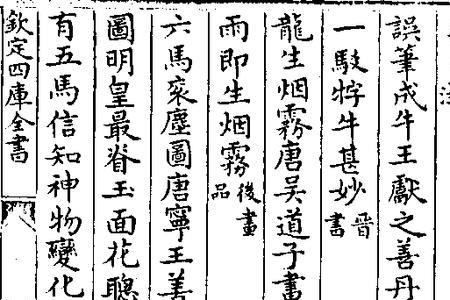 誤筆成牛王獻之善丹
一駮牸牛甚妙晉書
龍生烟霧唐吳道子畫
雨即生烟霧後畫品
六馬衮塵圖唐寧王善
圖明皇最眷玉面花驄
有五馬信知神物變化
欽定四庫全書